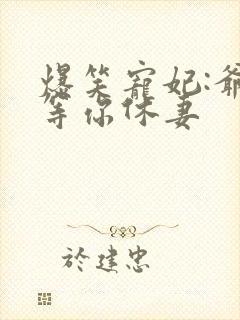 爆笑寵妃:爺
等你休妻
於建忠